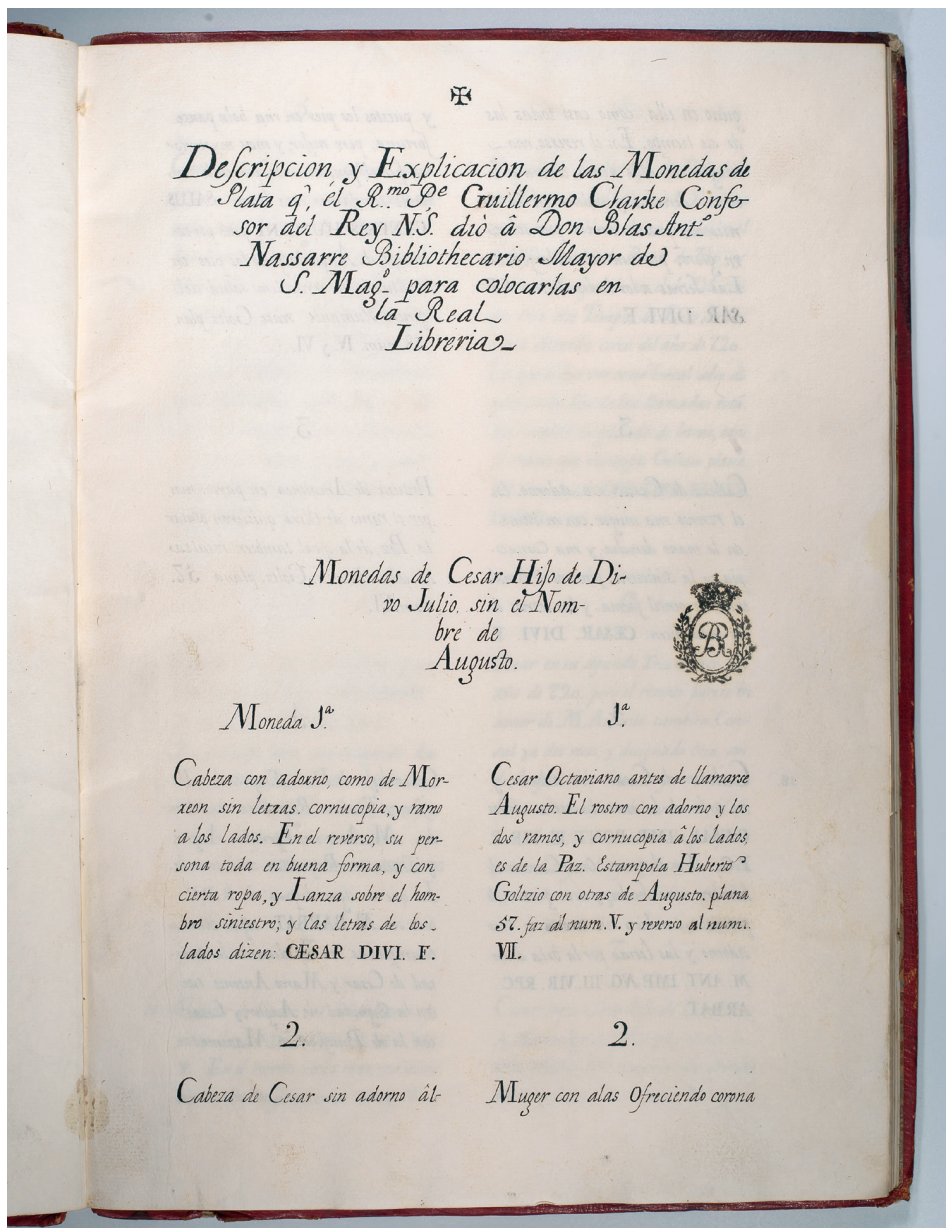 ✠
Descripcion y Explicacion de las Monedas de
Plata q̃, el R.mo P.e Guillermo Clarke Confe-
sor del Rey N.S. diò â Don Blas Ant.o
Nassarre Bibliothecario Mayor de
S. Mag.d para colocarlas en
la Real
Libreria
Monedas de Cesar Hijo de Di-
vo Julio, sin el Nom-
bre de
Augusto.
Moneda 1.ª
Cabeza con adorno, como de Mor-
reon sin letras. cornucopia, y ramo
a los lados. En el reverso, su per-
sona toda en buena forma, y con
cierta ropa, y Lanza sobre el hom-
bro siniestro; y las letras de los
lados dizen: CESAR DIVI. F.
2.
Cabeza de Cesar sin adorno âl-
1.ª
Cesar Octaviano antes de llamarse
Augusto. El rostro con adorno y los
dos ramos, y cornucopia â los lados,
es de la Paz. Estampola Huberto
Goltzio con otras de Augusto. plana
57. faz al num. V. y reverso al num.
VII.
2.
Muger con alas Ofreciendo corona
BR